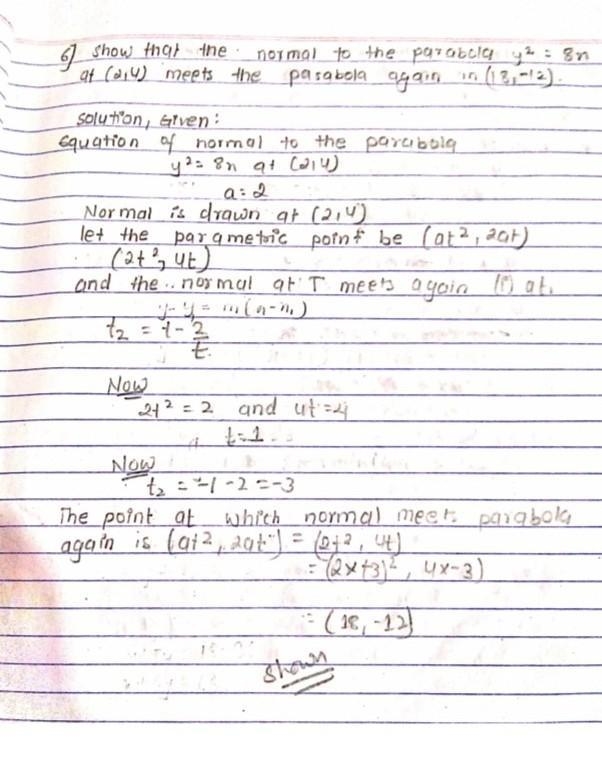 6] show that the normal to the parabola y² = 8x
at (2,4) meets the parabola again in (18,-12).
solution, Given:
Equation of normal to the parabola
y² = 8x at (2,4)
a = 2
Normal is drawn at (2,4)
let the parametric point be (at², 2at)
(2t², 4t)
and the normal at T meets again (i) at.
y-y₁ = m(x-x₁)
t₂ = -t - 2/t
Now
2t² = 2 and 4t = 4
t = 1
Now
t₂ = -1 - 2 = -3
The point at which normal meets parabola
again is (at², 2at) = (2t², 4t)
= (2×+3)², 4×-3)
= (18, -12)
shown